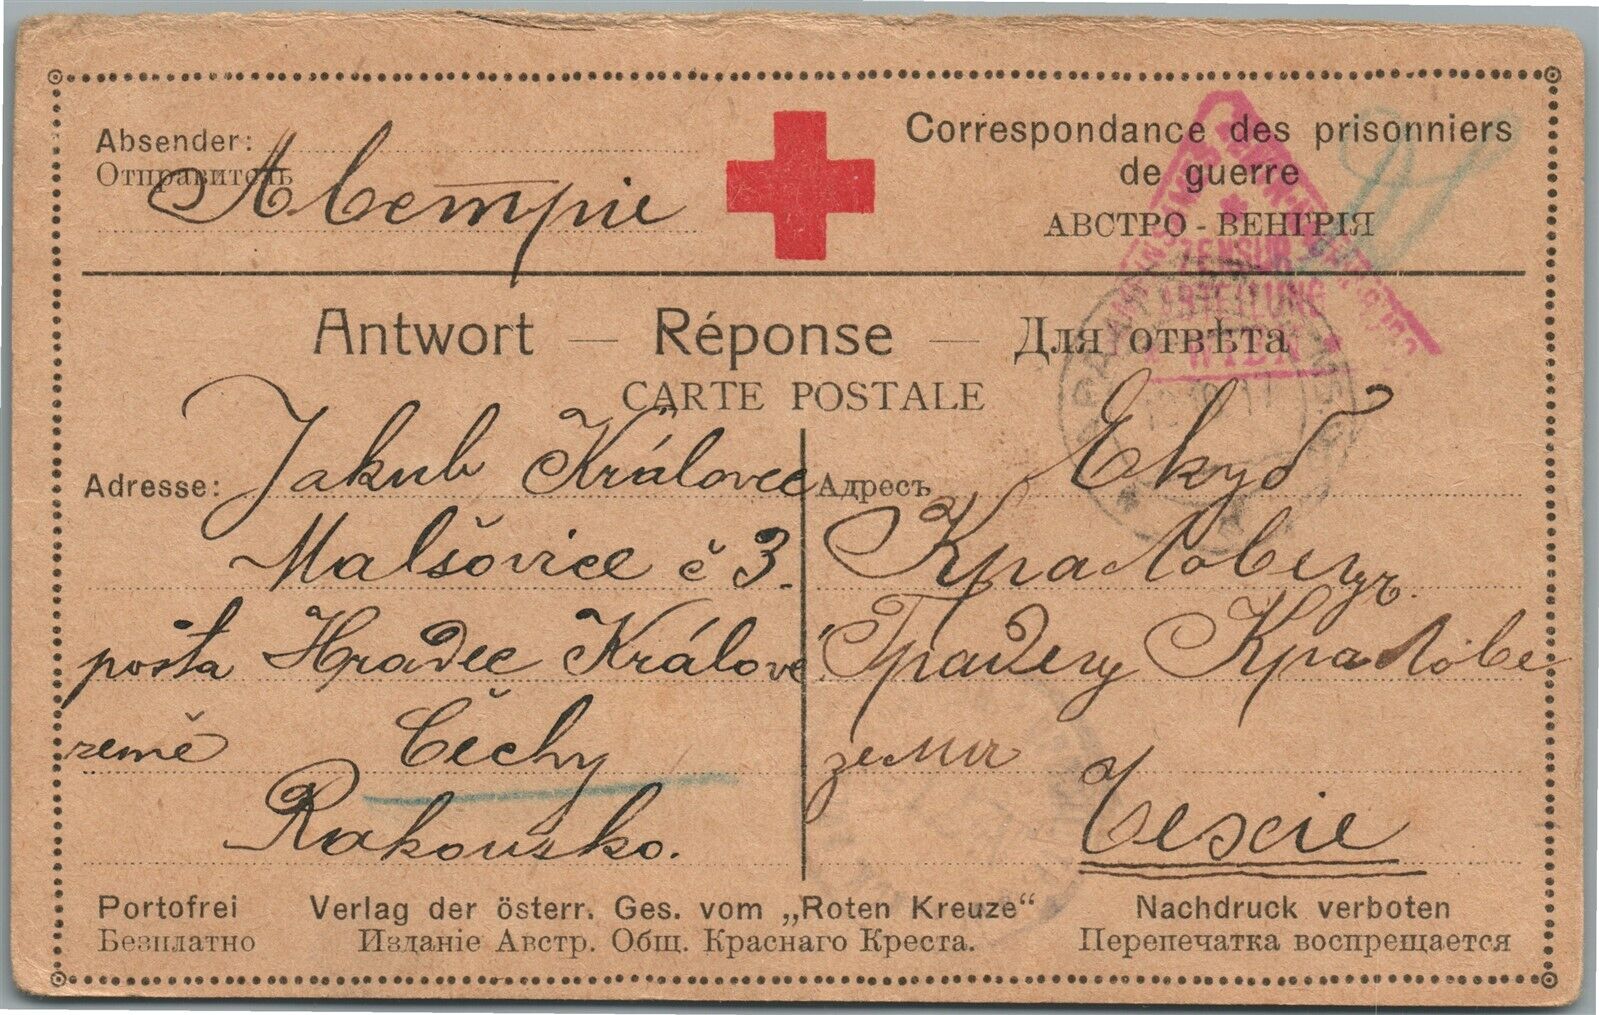 Absender:
Отправитель
Австріе
Correspondance des prisonniers
de guerre
АВСТРО - ВЕНГРІЯ
ZENSUR
ABTEILUNG
WIEN
Antwort — Réponse — Для отвѣта
CARTE POSTALE
Adresse: Jakub Královec
Malšovice č 3.
pošta Hradec Králové
země Čechy
Rakousko.
Адресъ Екуб
Краловецъ
Градец Кралове
земи
Чехіе
Portofrei
Безплатно
Verlag der österr. Ges. vom „Roten Kreuze“
Изданіе Австр. Общ. Краснаго Креста.
Nachdruck verboten
Перепечатка воспрещается